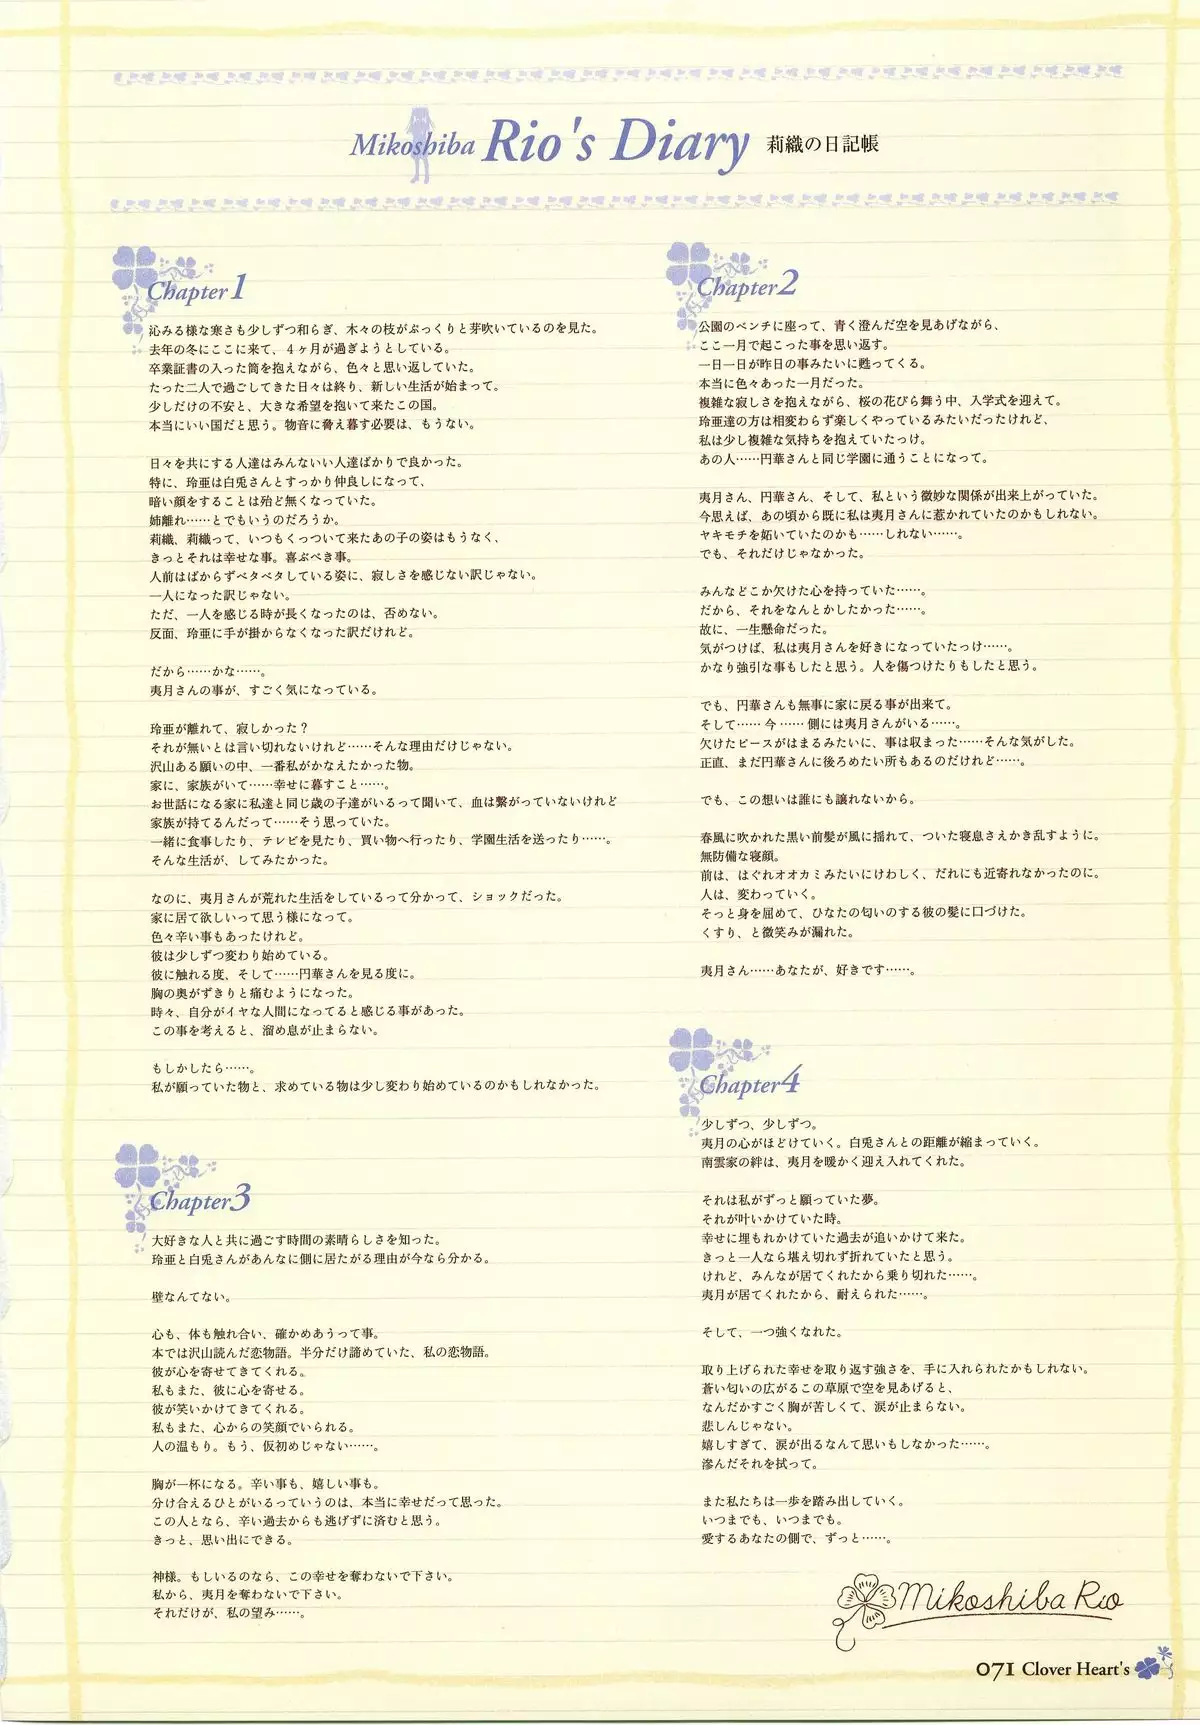 Mikoshiba Rio's Diary 莉織の日記帳
Chapter1
沁みる様な寒さも少しずつ和らぎ、木々の枝がぷっくりと芽吹いているのを見た。
去年の冬にここに来て、４ヶ月が過ぎようとしている。
卒業証書の入った筒を抱えながら、色々と思い返していた。
たった二人で過ごしてきた日々は終り、新しい生活が始まって。
少しだけの不安と、大きな希望を抱いて来たこの国。
本当にいい国だと思う。物音に脅え暮す必要は、もうない。
日々を共にする人達はみんないい人達ばかりで良かった。
特に、玲亜は白兎さんとすっかり仲良しになって、
暗い顔をすることは殆ど無くなっていた。
姉離れ……とでもいうのだろうか。
莉織、莉織って、いつもくっついて来たあの子の姿はもうなく、
きっとそれは幸せな事。喜ぶべき事。
人前はばからずベタベタしている姿に、寂しさを感じない訳じゃない。
一人になった訳じゃない。
ただ、一人を感じる時が長くなったのは、否めない。
反面、玲亜に手が掛からなくなった訳だけれど。
だから……かな……。
夷月さんの事が、すごく気になっている。
玲亜が離れて、寂しかった？
それが無いとは言い切れないけれど……そんな理由だけじゃない。
沢山ある願いの中、一番私がかなえたかった物。
家に、家族がいて……幸せに暮すこと……。
お世話になる家に私達と同じ歳の子達がいるって聞いて、血は繋がっていないけれど
家族が持てるんだって……そう思っていた。
一緒に食事したり、テレビを見たり、買い物へ行ったり、学園生活を送ったり……。
そんな生活が、してみたかった。
なのに、夷月さんが荒れた生活をしているって分かって、ショックだった。
家に居て欲しいって思う様になって。
色々辛い事もあったけれど。
彼は少しずつ変わり始めている。
彼に触れる度、そして……円華さんを見る度に。
胸の奥がずきりと痛むようになった。
時々、自分がイヤな人間になってると感じる事があった。
この事を考えると、溜め息が止まらない。
もしかしたら……。
私が願っていた物と、求めている物は少し変わり始めているのかもしれなかった。
Chapter2
公園のベンチに座って、青く澄んだ空を見あげながら、
ここ一月で起こった事を思い返す。
一日一日が昨日の事みたいに甦ってくる。
本当に色々あった一月だった。
複雑な寂しさを抱えながら、桜の花びら舞う中、入学式を迎えて。
玲亜達の方は相変わらず楽しくやっているみたいだったけれど、
私は少し複雑な気持ちを抱えていたっけ。
あの人……円華さんと同じ学園に通うことになって。
夷月さん、円華さん、そして、私という微妙な関係が出来上がっていた。
今思えば、あの頃から既に私は夷月さんに惹かれていたのかもしれない。
ヤキモチを妬いていたのかも……しれない……。
でも、それだけじゃなかった。
みんなどこか欠けた心を持っていた……。
だから、それをなんとかしたかった……。
故に、一生懸命だった。
気がつけば、私は夷月さんを好きになっていたっけ……。
かなり強引な事もしたと思う。人を傷つけたりもしたと思う。
でも、円華さんも無事に家に戻る事が出来て。
そして…… 今 …… 側には夷月さんがいる……。
欠けたピースがはまるみたいに、事は収まった……そんな気がした。
正直、まだ円華さんに後ろめたい所もあるのだけれど……。
でも、この想いは誰にも譲れないから。
春風に吹かれた黒い前髪が風に揺れて、ついた寝息さえかき乱すように。
無防備な寝顔。
前は、はぐれオオカミみたいにけわしく、だれにも近寄れなかったのに。
人は、変わっていく。
そっと身を屈めて、ひなたの匂いのする彼の髪に口づけた。
くすり、と微笑みが漏れた。
夷月さん……あなたが、好きです……。
Chapter3
大好きな人と共に過ごす時間の素晴らしさを知った。
玲亜と白兎さんがあんなに側に居たがる理由が今なら分かる。
壁なんてない。
心も、体も触れ合い、確かめあうって事。
本では沢山読んだ恋物語。半分だけ諦めていた、私の恋物語。
彼が心を寄せてきてくれる。
私もまた、彼に心を寄せる。
彼が笑いかけてきてくれる。
私もまた、心からの笑顔でいられる。
人の温もり。もう、仮初めじゃない……。
胸が一杯になる。辛い事も、嬉しい事も。
分け合えるひとがいるっていうのは、本当に幸せだって思った。
この人となら、辛い過去からも逃げずに済むと思う。
きっと、思い出にできる。
神様。もしいるのなら、この幸せを奪わないで下さい。
私から、夷月を奪わないで下さい。
それだけが、私の望み……。
Chapter4
少しずつ、少しずつ。
夷月の心がほどけていく。白兎さんとの距離が縮まっていく。
南雲家の絆は、夷月を暖かく迎え入れてくれた。
それは私がずっと願っていた夢。
それが叶いかけていた時。
幸せに埋もれかけていた過去が追いかけて来た。
きっと一人なら堪え切れず折れていたと思う。
けれど、みんなが居てくれたから乗り切れた……。
夷月が居てくれたから、耐えられた……。
そして、一つ強くなれた。
取り上げられた幸せを取り返す強さを、手に入れられたかもしれない。
蒼い匂いの広がるこの草原で空を見あげると、
なんだかすごく胸が苦しくて、涙が止まらない。
悲しんじゃない。
嬉しすぎて、涙が出るなんて思いもしなかった……。
滲んだそれを拭って。
また私たちは一歩を踏み出していく。
いつまでも、いつまでも。
愛するあなたの側で、ずっと……。
Mikoshiba Rio
071 Clover Heart's